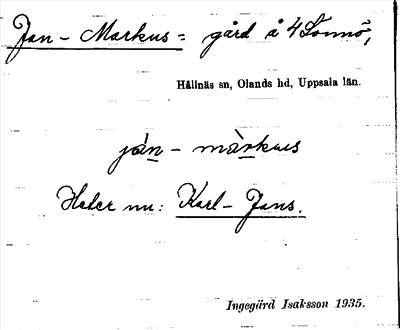 Jan - Markus = gård å 4 Lönnö,
Hållnäs sn, Olands hd, Uppsala län.
ján - màrkus
Heter nu: Karl - Jans.
Ingegärd Isaksson 1935.